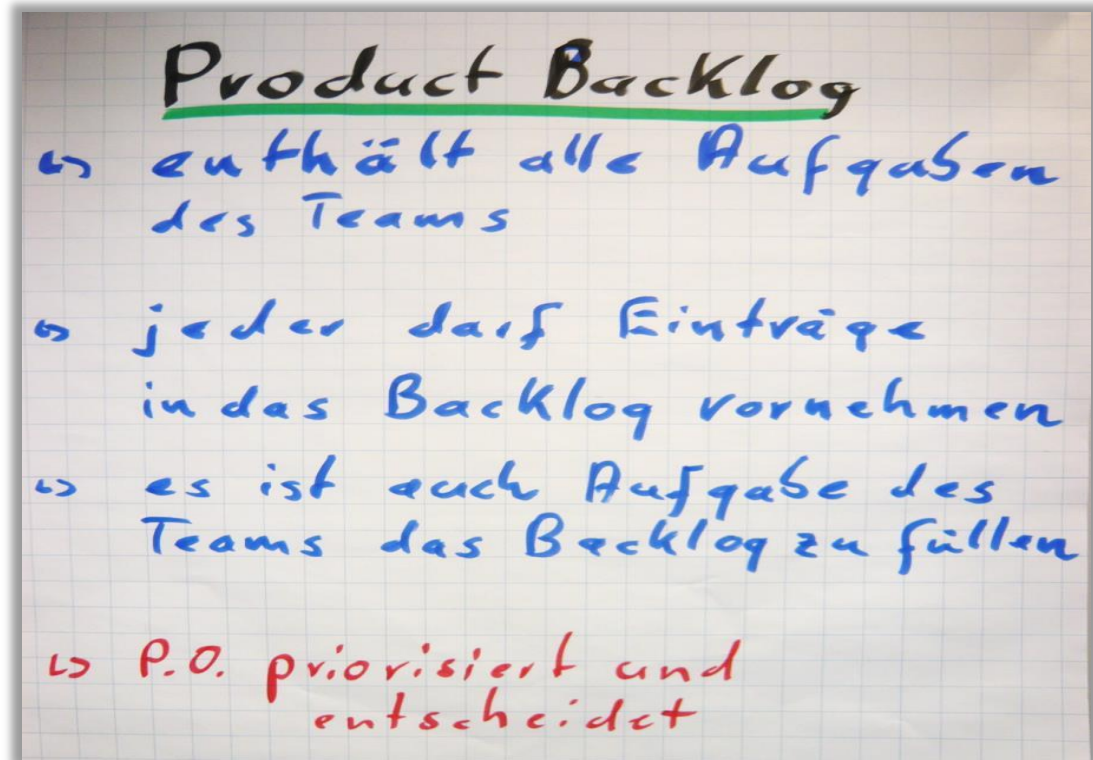 Product Backlog
↳ enthält alle Aufgaben
des Teams
↳ jeder darf Einträge
in das Backlog vornehmen
↳ es ist auch Aufgabe des
Teams das Backlog zu füllen
↳ P.O. priorisiert und
entscheidet